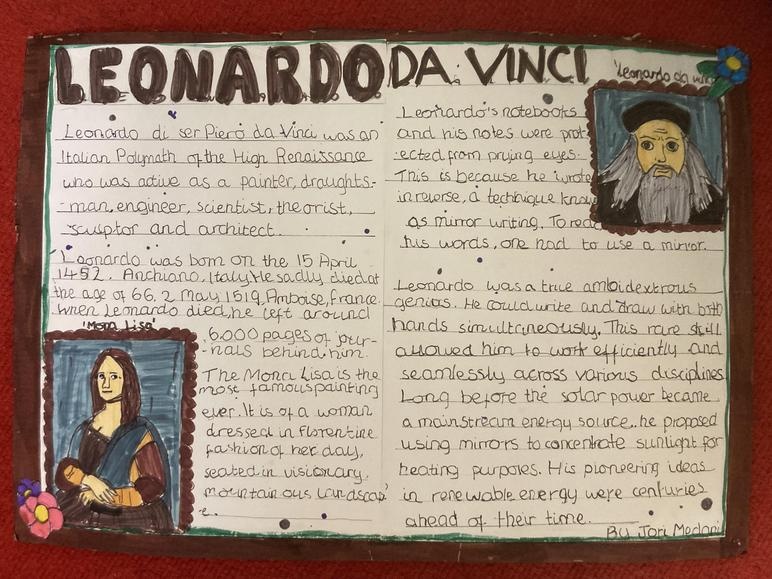 LEONARDO DA VINCI
Leonardo di ser Piero da Vinci was an
Italian Polymath of the High Renaissance
who was active as a painter, draughts-
-man, engineer, scientist, theorist,
sculptor and architect.
Leonardo was born on the 15 April
1452. Anchiano, Italy. He sadly died at
the age of 66, 2 May 1519, Amboise, France.
When Leonardo died, he left around
'Mona Lisa'
6,000 pages of jour-
-nals behind him.
The Mona Lisa is the
most famous painting
ever. It is of a woman
dressed in florentine
fashion of her day,
seated in visionary,
mountainous landscap
e.
'Leonardo da vinci
Leonardo's notebooks
and his notes were prot-
-ected from prying eyes.
This is because he wrote
in reverse, a technique know
as mirror writing. To read
his words, one had to use a mirror.
Leonardo was a true ambidextrous
genious. He could write and draw with both
hands simultineously. This rare skill
allowed him to work efficiently and
seamlessly across various disciplines
Long before the solar power became
a mainstream energy source, he proposed
using mirrors to concentrate sunlight for
heating purposes. His pioneering ideas
in renewable energy were centuries
ahead of their time.
By Jori Medani